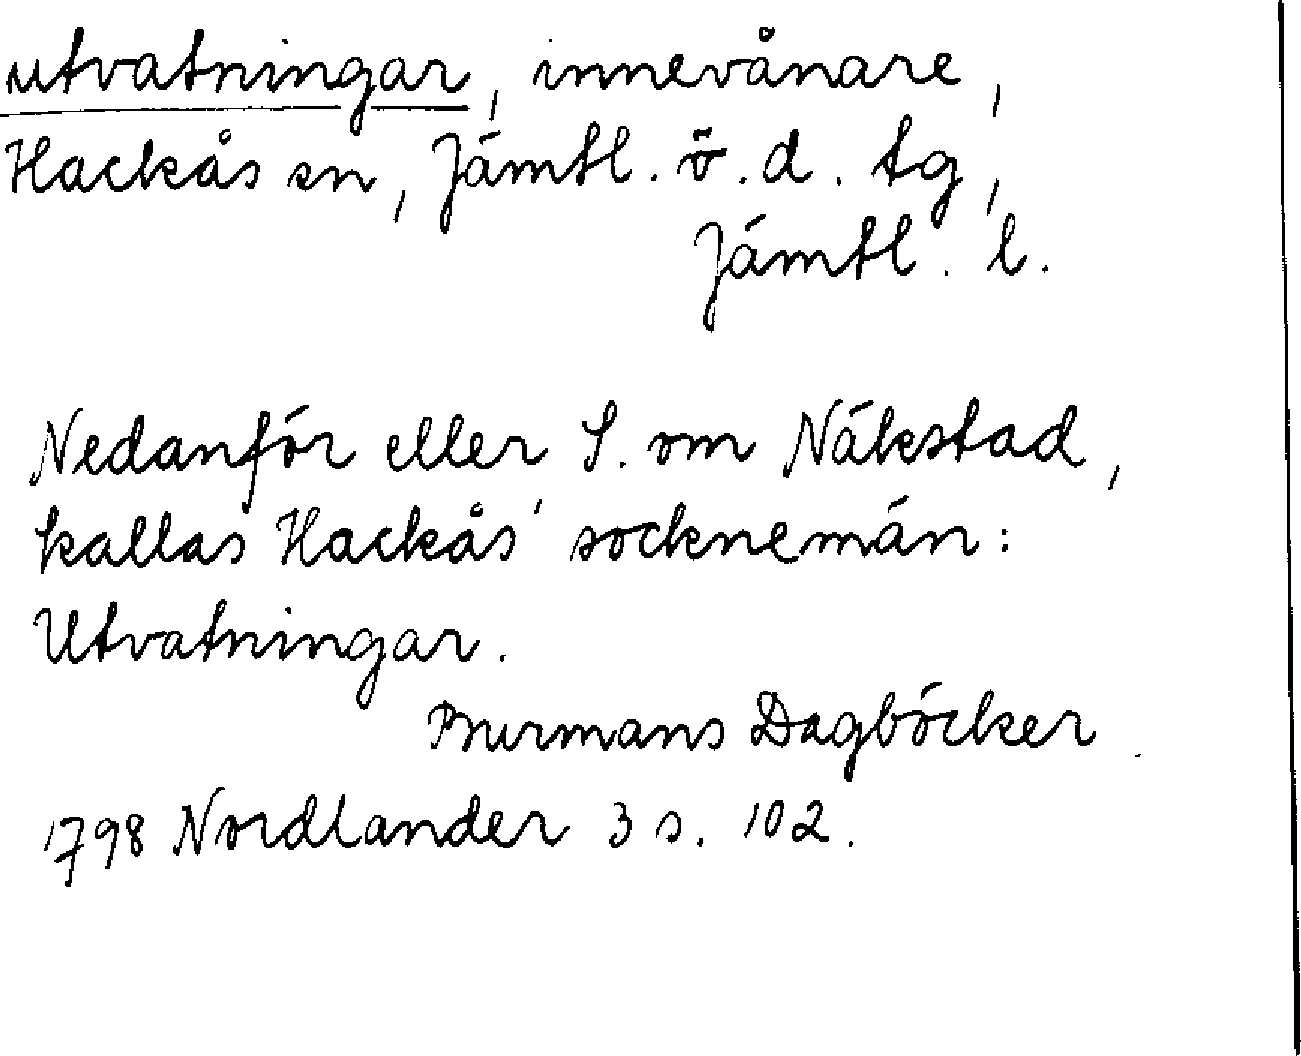 utvatningar, innevånare,
Hackås sn, Jämtl. ö. d. tg,
Jämtl. l.
Nedanför eller S. om Näkstad,
kallas Hackås' socknemän:
Utvatningar.
Burmans Dagböcker.
1798 Nordlander 3 s. 102.